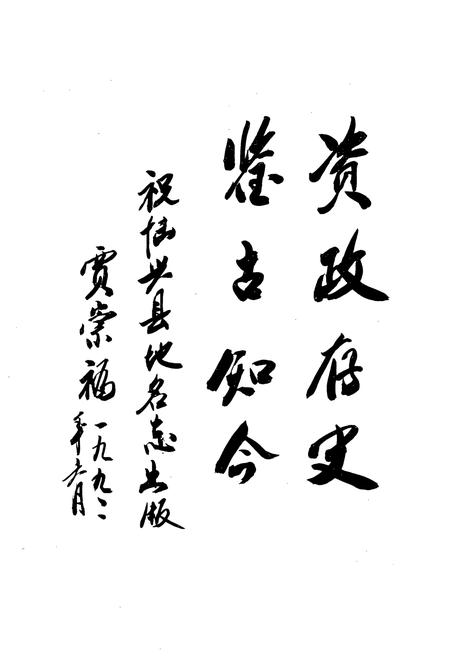 资政存史
鉴古知今
祝兴县地名志出版
贾崇福
一九九二
年六月